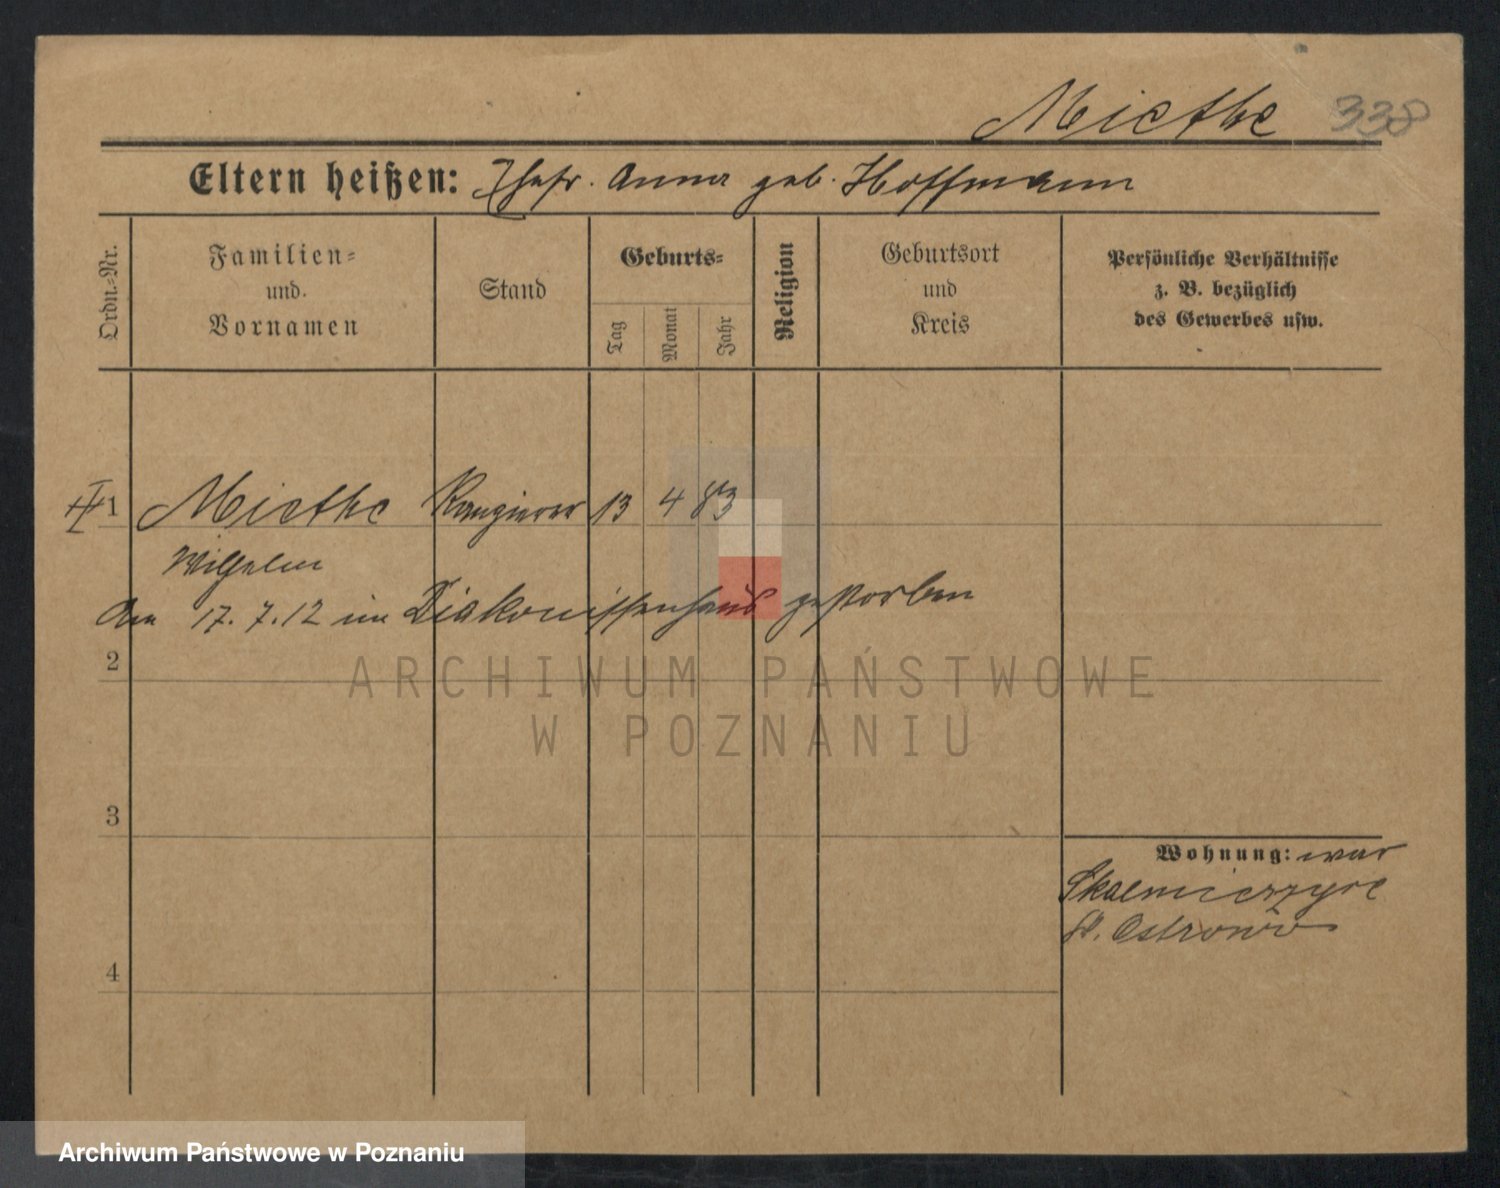 Miethe 338
Eltern heißen: Ehefr. Anna geb. Hoffmann
Ordn.-Nr.
Familien-
und
Vornamen
Stand
Geburts-
Tag
Monat
Jahr
Religion
Geburtsort
und
Kreis
Persönliche Verhältnisse
z. B. bezüglich
des Gewerbes usw.
1 Miethe Rangierer 13 4 83
Wilhelm
Am 17.7.12 im Diakonissenhaus gestorben
2
ARCHIWUM PAŃSTWOWE
W POZNANIU
3
Wohnung: war
Skalmierzyce
Kr. Ostrowo
4
Archiwum Państwowe w Poznaniu